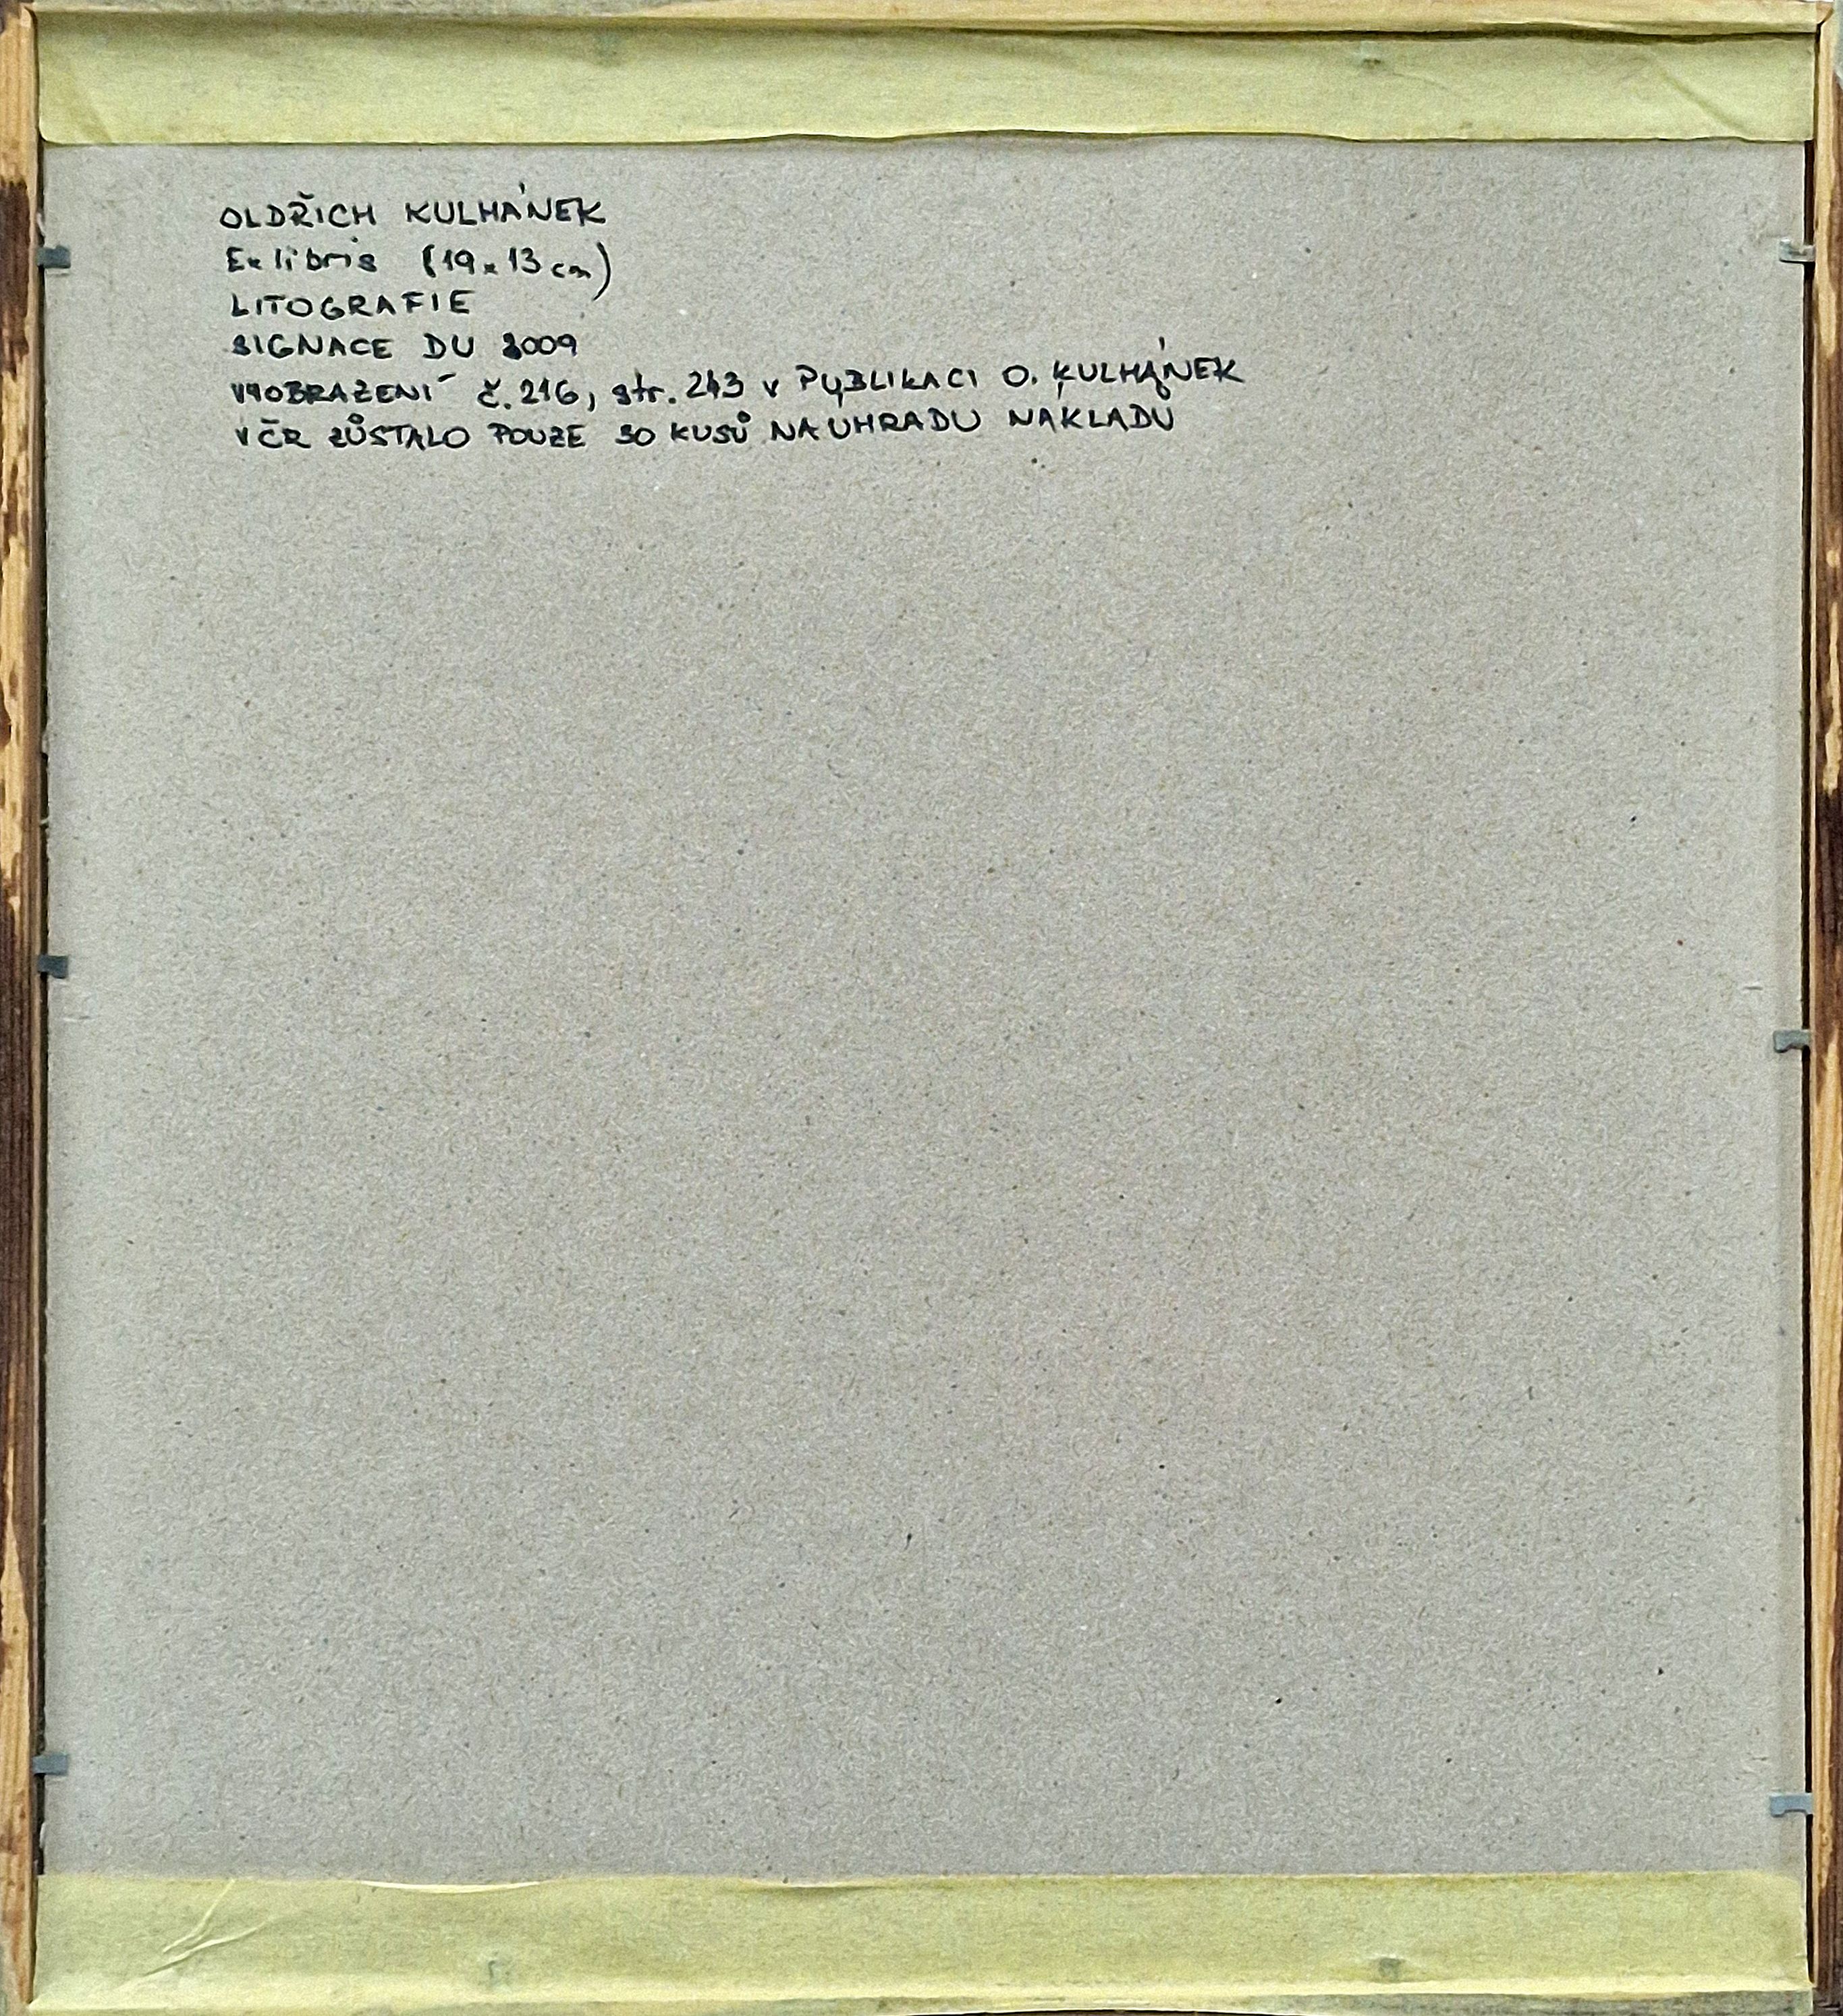 OLDŘICH KULHÁNEK
Ex libris (19 x 13 cm)
LITOGRAFIE
SIGNACE DU 2009
VYOBRAZENÍ č. 216, str. 243 v PUBLIKACI O. KULHÁNEK
V ČR ZŮSTALO POUZE 30 KUSŮ NA ÚHRADU NÁKLADU